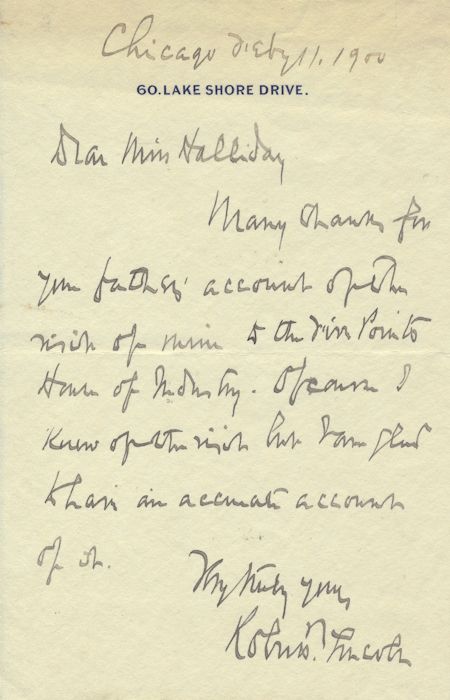 Chicago Feby 11. 1900
60. LAKE SHORE DRIVE.
Dear Miss Halliday
Many thanks for
your fathers' account of the
visit of mine to the Five Points
House of Industry. Of course I
knew of the visit but I am glad
to have an accurate account
of it.
Very truly yours,
Robert T. Lincoln